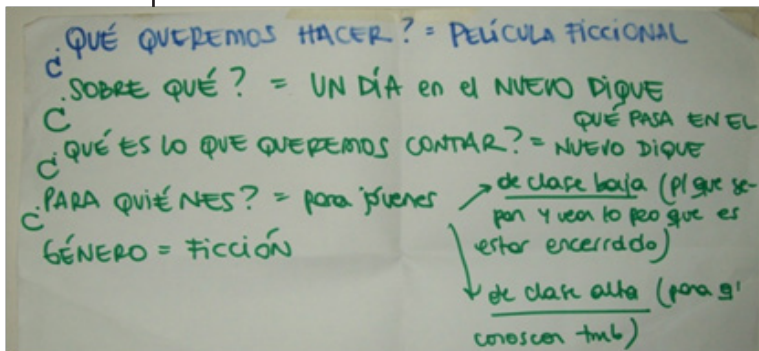 ¿QUÉ QUEREMOS HACER? = PELÍCULA FICCIONAL
¿SOBRE QUÉ? = UN DÍA en el NUEVO DIQUE
¿QUÉ ES LO QUE QUEREMOS CONTAR? = QUÉ PASA EN EL
NUEVO DIQUE
¿PARA QUIÉNES? = para jóvenes
de clase baja (p/ que se-
pan y vean lo feo que es
estar encerrado)
de clase alta (para q'
conoscan tmb)
GÉNERO = FICCIÓN